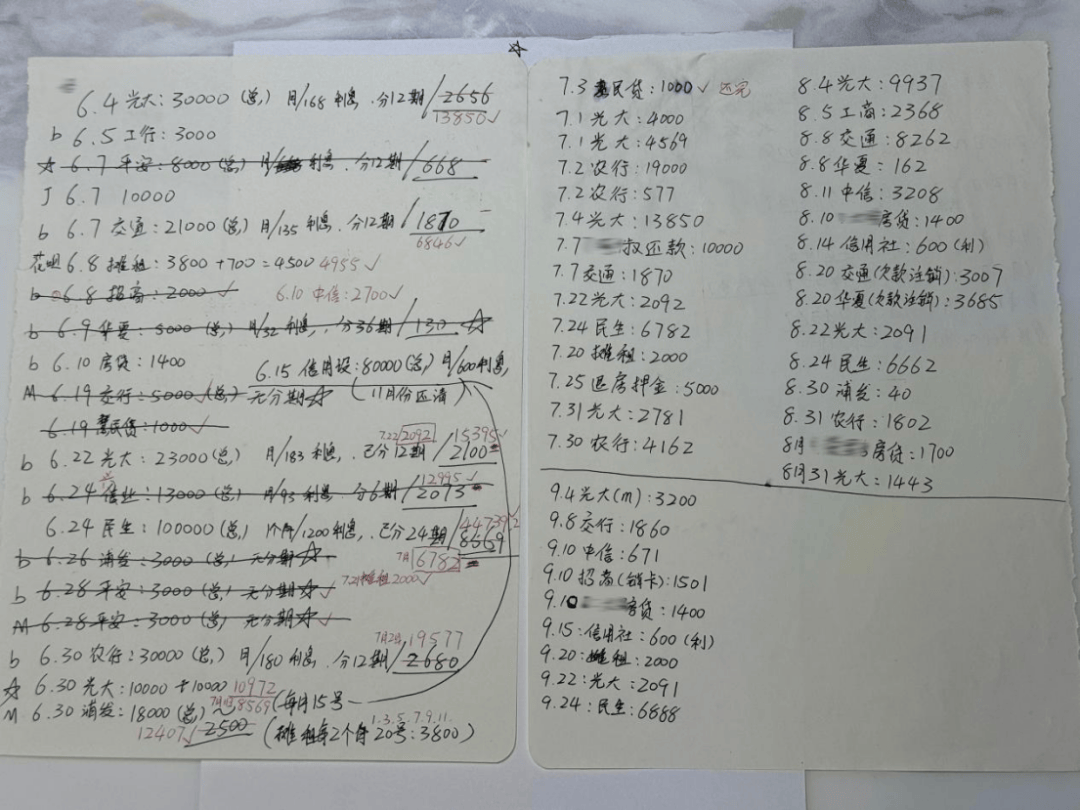 ☆
6.4 光大:30000(总) 月/168利息.分12期/2656
13850✓
b 6.5 工行:3000
☆ 6.7 平安:8000(总) 月/利息.分12期/668
J 6.7 10000
b 6.7 交通:21000(总) 月/135利息.分12期/1870
6846✓
花呗 6.8 摊租:3800+700=4500 4955✓
b 6.8 招商:2000✓ 6.10 中信:2700✓
b 6.9 华夏:5000(总) 月/32利息.分36期/130 ☆
b 6.10 房贷:1400 6.15 信用设:80000(总) 月/600利息,
M 6.19 交行:5000(总) 无分期☆ (11月份还清)
6.19 惠民贷:1000✓
7.22 2092 15395✓
b 6.22 光大:23000(总) 月/183利息.已分12期/2100
12995✓
b 6.24 兴业:13000(总) 月/93利息.分6期/2073
44739
6.24 民生:100000(总) 1个月/1200利息.已分24期/8669
b 6.26 浦发:3000(总) 无分期☆ 7月 6782
b 6.28 平安:3000(总) 无分期☆ 7.21摊租2000✓
M 6.28 平安:3000(总) 无分期☆✓
7月2日19577
b 6.30 农行:30000(总) 月/180利息.分12期/2680
☆ 6.30 光大:10000+10000 10972
M 6.30 浦发:18000(总) 8569 (每月15号
12407✓ 2500 (摊租每2个月20号:3800)
1.3.5.7.9.11.
7.3 惠民贷:1000✓ 还完
7.1 光大:4000
7.1 光大:4569
7.2 农行:19000
7.2 农行:577
7.4 光大:13850
7.7 叔还款:10000
7.7 交通:1870
7.22 光大:2092
7.24 民生:6782
7.20 摊租:2000
7.25 退房押金:5000
7.31 光大:2781
7.30 农行:4162
8.4 光大:9937
8.5 工商:2368
8.8 交通:8262
8.8 华夏:162
8.11 中信:3208
8.10 房贷:1400
8.14 信用社:600(利)
8.20 交通(欠款注销):3007
8.20 华夏(欠款注销):3685
8.22 光大:2091
8.24 民生:6662
8.30 浦发:40
8.31 农行:1802
8月 房贷:1700
8月31光大:1443
9.4 光大(m):3200
9.8 交行:1860
9.10 中信:671
9.10 招商(销卡):1501
9.10 房贷:1400
9.15:信用社:600(利)
9.20:摊租:2000
9.22:光大:2091
9.24:民生:6888